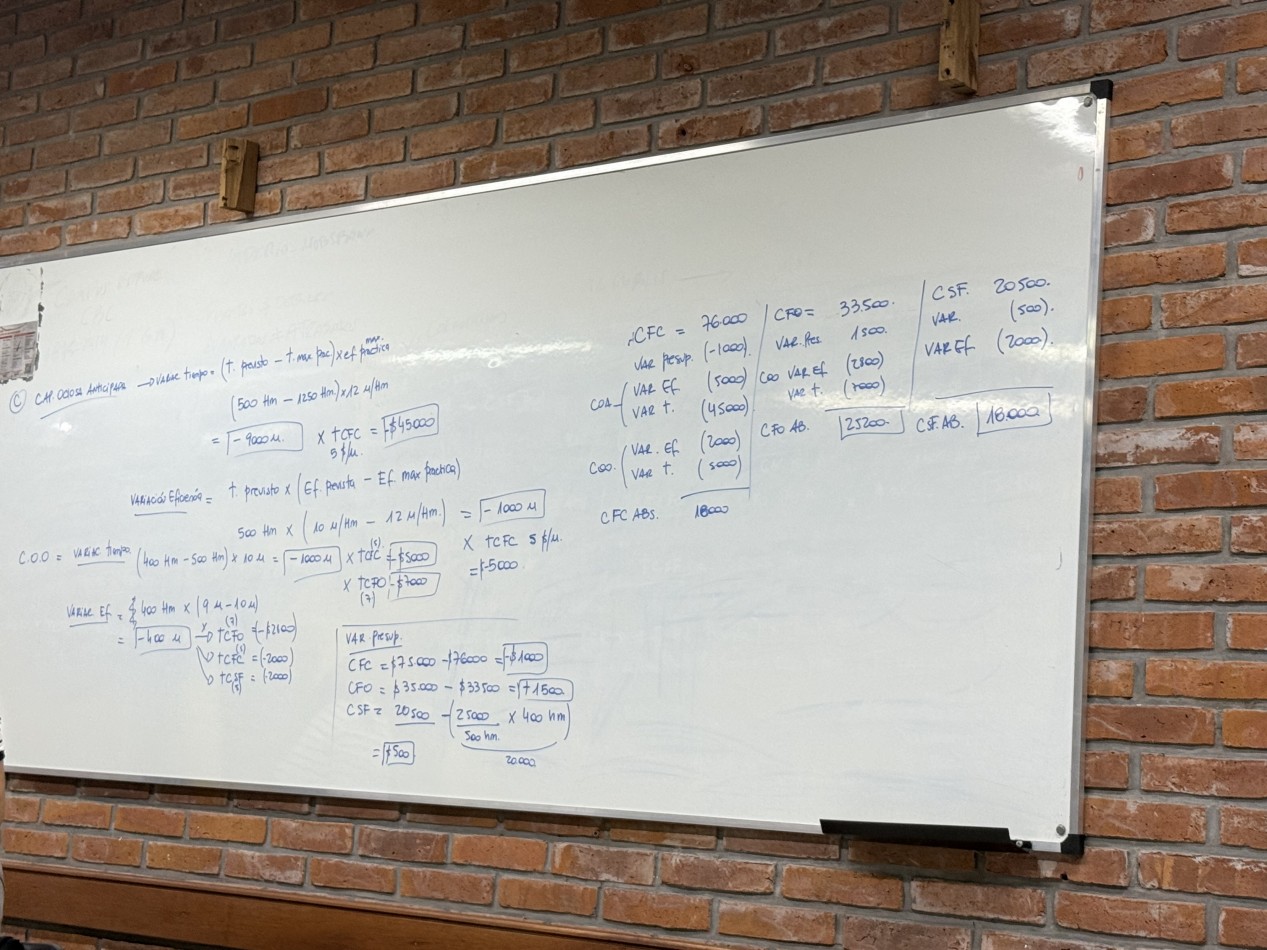 Ⓒ CAP. OCIOSA ANTICIPADA → VARIAC tiempo = (t. previsto - t. max prac) x ef. max. practica
(500 Hm - 1250 Hm) x 12 μ/Hm
= -9000 μ. x tCFC 5 $/μ. = -$45000
VARIACIÓN Eficiencia = t. previsto x (Ef. prevista - Ef. max practica)
500 Hm x (10 μ/Hm - 12 μ/Hm.) = -1000 μ
x tCFC 5 $/μ.
= $-5000
C.O.O = VARIAC tiempo (400 Hm - 500 Hm) x 10 μ = -1000 μ x tCFC (5) = -$5000
x tCFO (7) -$7000
VARIAC Ef = 400 Hm x (9 μ - 10 μ)
= -400 μ x → tCFO (7) = (-$2800)
↘ tCFC (5) = (-2000)
↘ tCSF (5) = (-2000)
VAR. presup.
CFC = $75.000 - $76000 = -$1000
CFO = $35.000 - $33500 = +1500
CSF = 20500 - (25000 / 500 hm. x 400 hm)
20.000
= $500
CFC = 76.000
VAR presup. (-1000).
COA VAR Ef (5000)
VAR t. (45000)
COO. VAR. Ef (2000)
VAR t. (5000)
CFC ABS. 18000
CFO = 33.500.
VAR. Pres. 1500.
COO VAR Ef (2800)
VAR t. (7000)
CFO AB. 25200.
CSF. 20500.
VAR. (500).
VAR Ef (2000).
CSF. AB. 18.000